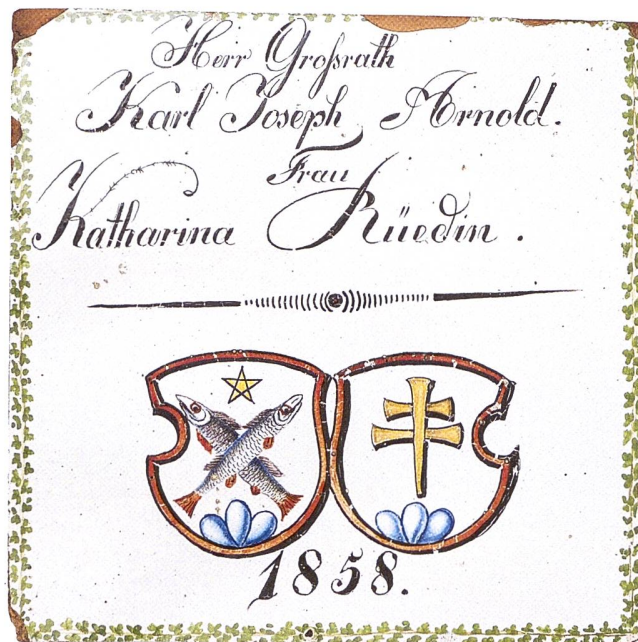 Herr Großrath
Karl Joseph Arnold.
Frau
Katharina Rüedin.
1858.